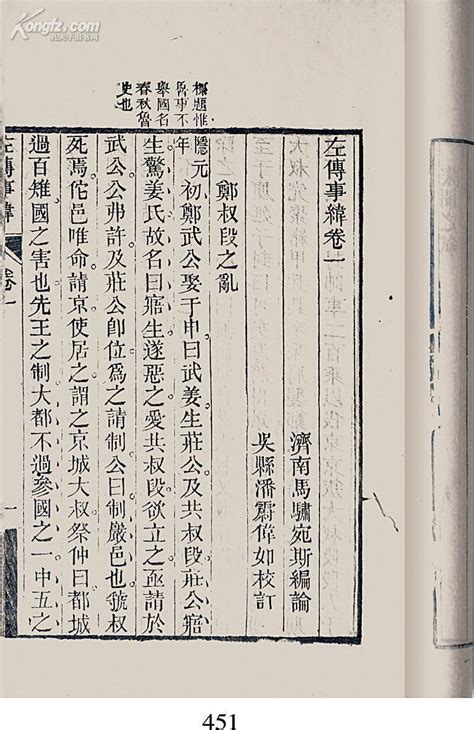 Kongfz.com
孔夫子旧书网
標題惟
魯事不
舉國名
春秋魯
史也
左傳事緯卷一
濟南馬驌宛斯編論
吳縣潘霨偉如校訂
鄭叔段之亂
隱元年初鄭武公娶于申曰武姜生莊公及共叔段莊公寤
生驚姜氏故名曰寤生遂惡之愛共叔段欲立之亟請於
武公公弗許及莊公卽位爲之請制公曰制嚴邑也虢叔
死焉佗邑唯命請京使居之謂之京城大叔祭仲曰都城
過百雉國之害也先王之制大都不過參國之一中五之
左傳事緯 卷一 一
451